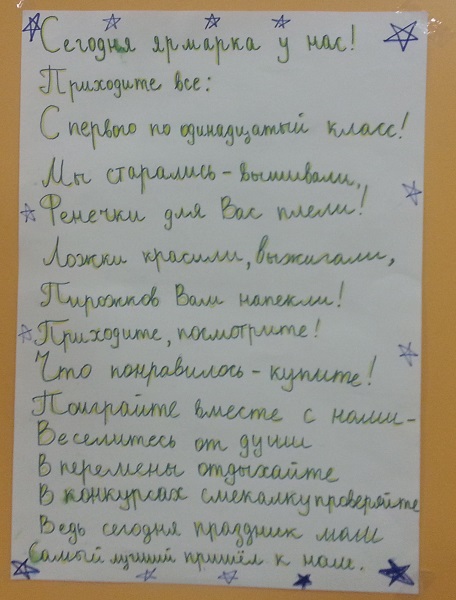 Сегодня ярмарка у нас!
Приходите все:
С первого по одинадцатый класс!
Мы старались - вышивали,
Фенечки для Вас плели!
Ложки красили, выжигали,
Пирожков Вам напекли!
Приходите, посмотрите!
Что понравилось - купите!
Поиграйте вместе с нами -
Веселитесь от души
В перемены отдыхайте
В конкурсах смекалку проверяйте
Ведь сегодня праздник наш
Самый лучший пришёл к нам.